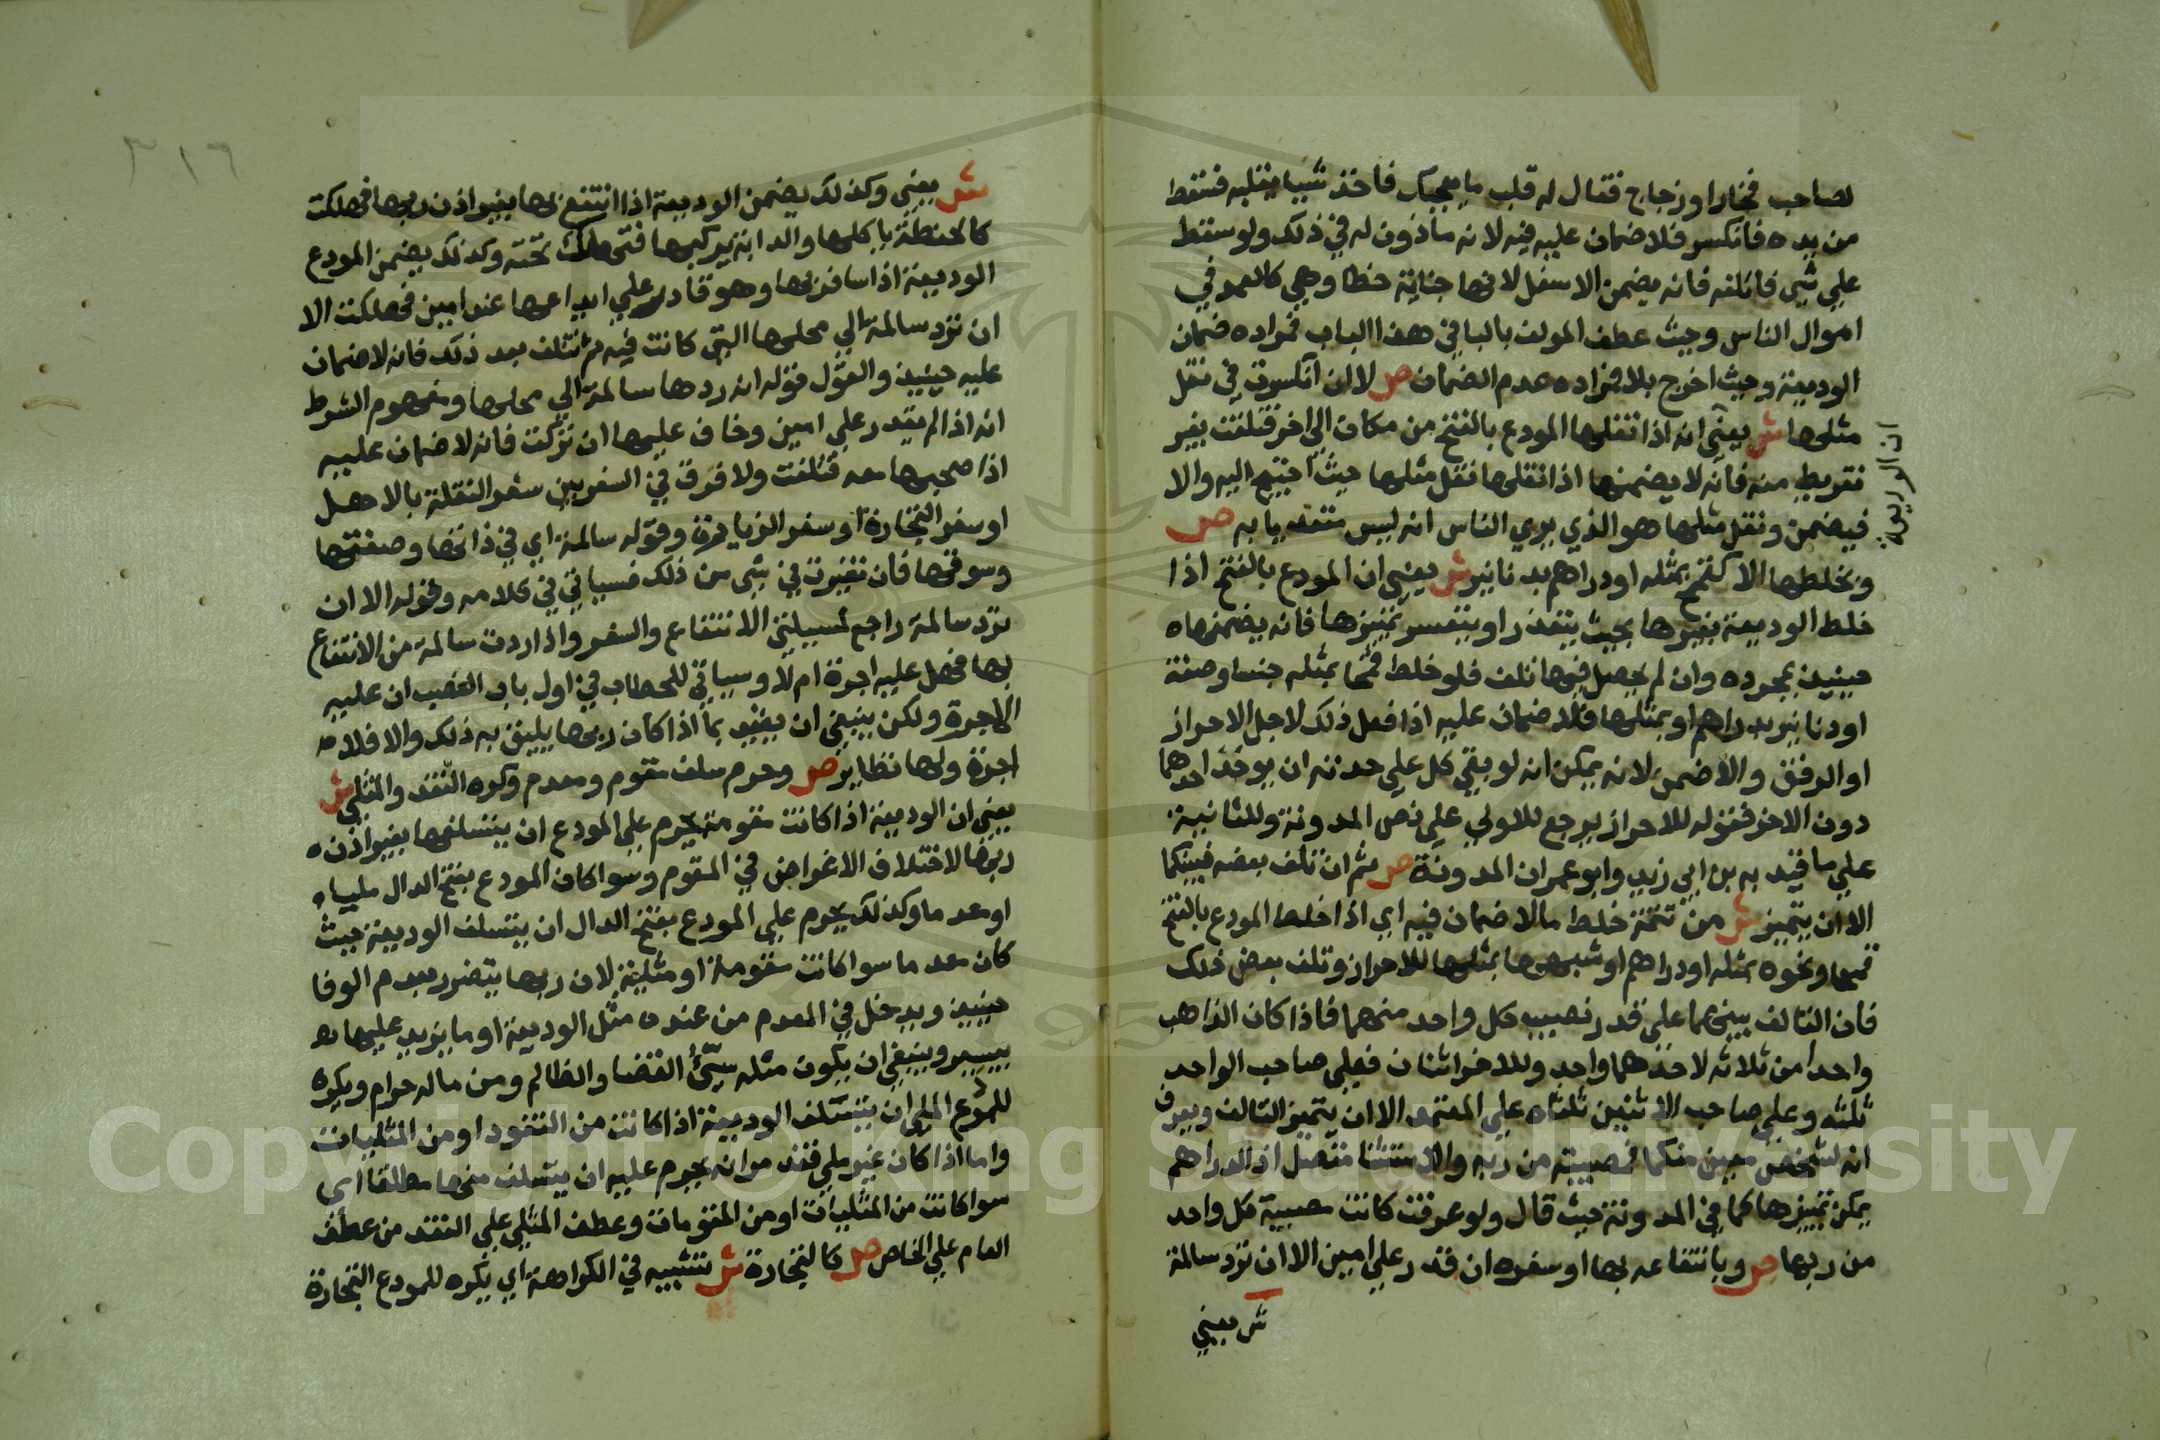 لصاحب فخار او زجاج فقال له قلب ما يعجبك فاخذ شيا يقلبه فسقط
من يده فانكسر فلا ضمان عليه فيه لانه مأذون له في ذلك ولو سقط
علي شي فاتلفه فانه يضمن الاسفل لانها جناية خطا وهي كالعمد في
اموال الناس وحيث عطف المولف بالبا في هذا الباب فمراده ضمان
الوديعة وحيث اخرج بلا فمراده عدم الضمان ص لا ان انكسرت في نقل
مثلها ش يعني انه اذا نقلها المودع بالفتح من مكان الي اخر فتلفت بغير
تفريط منه فانه لا يضمنها اذا نقلها نقل مثلها حيث احتيج اليه والا
فيضمن ونقل مثلها هو الذي يري الناس انه ليس متعديا به ص
وبخلطها الا كقمح بمثله او دراهم بدنانير ش يعني ان المودع بالفتح اذا
خلط الوديعة بغيرها بحيث يتعذر او يتعسر تمييزها فانه يضمنها ه
حينيذ بمجرده وان لم يحصل فيها تلف فلو خلط قمحا بمثله جنسا وصفة
او دنانير بدراهم او بمثلها فلا ضمان عليه اذا فعل ذلك لاجل الاحراز
او الرفق والا ضمن لانه يمكن انه لو بقي كل علي حدته ان يوخذ احدهما
دون الاخر فقوله للاحراز يرجع للاولي علي نص المدونة وللثانية
علي ما قيد به بن ابي زيد وابو عمران المدونة ص ثم ان تلف بعضه فبينكما
الا ان يتميز ش من تتمة خلط ما لا ضمان فيه اي اذا خلط المودع بالفتح
قمحا ونحوه بمثله او دراهم او شبهها بمثلها للاحراز وتلف بعض ذلك
فان التالف بينهما علي قدر نصيب كل واحد منهما فاذا كان الذاهب
واحدا من ثلاثه لاحدهما واحد وللاخر اثنان فعلي صاحب الواحد
ثلثه وعلي صاحب الاثنين ثلثاه علي المعتمد الا ان يتميز التالف ويعرف
انه لشخص معين منكما فمصيبته من ربه والاستثنا متصل اذ الدراهم
يمكن تمييزها كما في المدونة حيث قال ولو عرفت كانت مصيبة كل واحد
من ربها ص وبانتفاعه بها او سفره ان قدر علي امين الا ان ترد سالمة
ش يعني
٣١٦
ش يعني وكذلك يضمن الوديعة اذا انتفع بها بغير اذن ربها فهلكت
كالحنطة ياكلها والدابة يركبها فتهلك تحته وكذلك يضمن المودع
الوديعة اذا سافر بها وهو قادر علي ايداعها عند امين فهلكت الا
ان ترد سالمة الي محلها التي كانت فيه ثم تتلف بعد ذلك فانه لا ضمان
عليه حينيذ والقول قوله انه ردها سالمة الي محلها ومفهوم الشرط
انه اذا لم يقدر علي امين وخاف عليها ان تركت فانه لا ضمان عليه
اذا صحبها معه فتلفت ولا فرق في السفر بين سفر النقلة بالاهل
او سفر التجارة او سفر الزيارة وقوله سالمة اي في ذاتها وصفتها
وسوقها فان تغيرت في شي من ذلك فسياتي في كلامه وقوله الا ان
ترد سالمة راجع لمسيلتي الانتفاع والسفر واذا ردت سالمة من الانتفاع
بها فهل عليه اجرة ام لا وسياتي للحطاب في اول باب الغصب ان عليه
الاجرة ولكن ينبغي ان يقيد بما اذا كان ربها يليق به ذلك والا فلا
اجرة ولها نظاير ص وحرم سلف مقوم ومعدم وكره النقد والمثلي ش
يعني ان الوديعة اذا كانت مقومة يحرم علي المودع ان يتسلفها بغير اذن ه
ربها لاختلاف الاغراض في المقوم وسوا كان المودع بفتح الدال مليا ه
او معدما وكذلك يحرم علي المودع بفتح الدال ان يتسلف الوديعة حيث
كان معدما سوا كانت مقومة او مثلية لان ربها يتضرر بعدم الوفا
حينيذ ويدخل في المعدم من عنده مثل الوديعة او ما يزيد عليها
بيسير وينبغي ان يكون مثله سيئ القضا والظالم ومن ماله حرام ويكره
للمودع الملي ان يتسلف الوديعة اذا كانت من النقود او من المثليات
واما اذا كان غير ملي فقد مر انه يحرم عليه ان يتسلف منها مطلقا اي
سوا كانت من المثليات او من المقومات وعطف المثلي علي النقد من عطف
العام علي الخاص ص كالتجارة ش تشبيه في الكراهة اي يكره للمودع التجارة